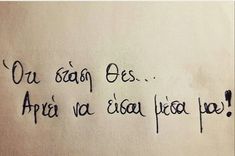 Ότι στάση θες...
Αρκεί να είσαι μέσα μου!